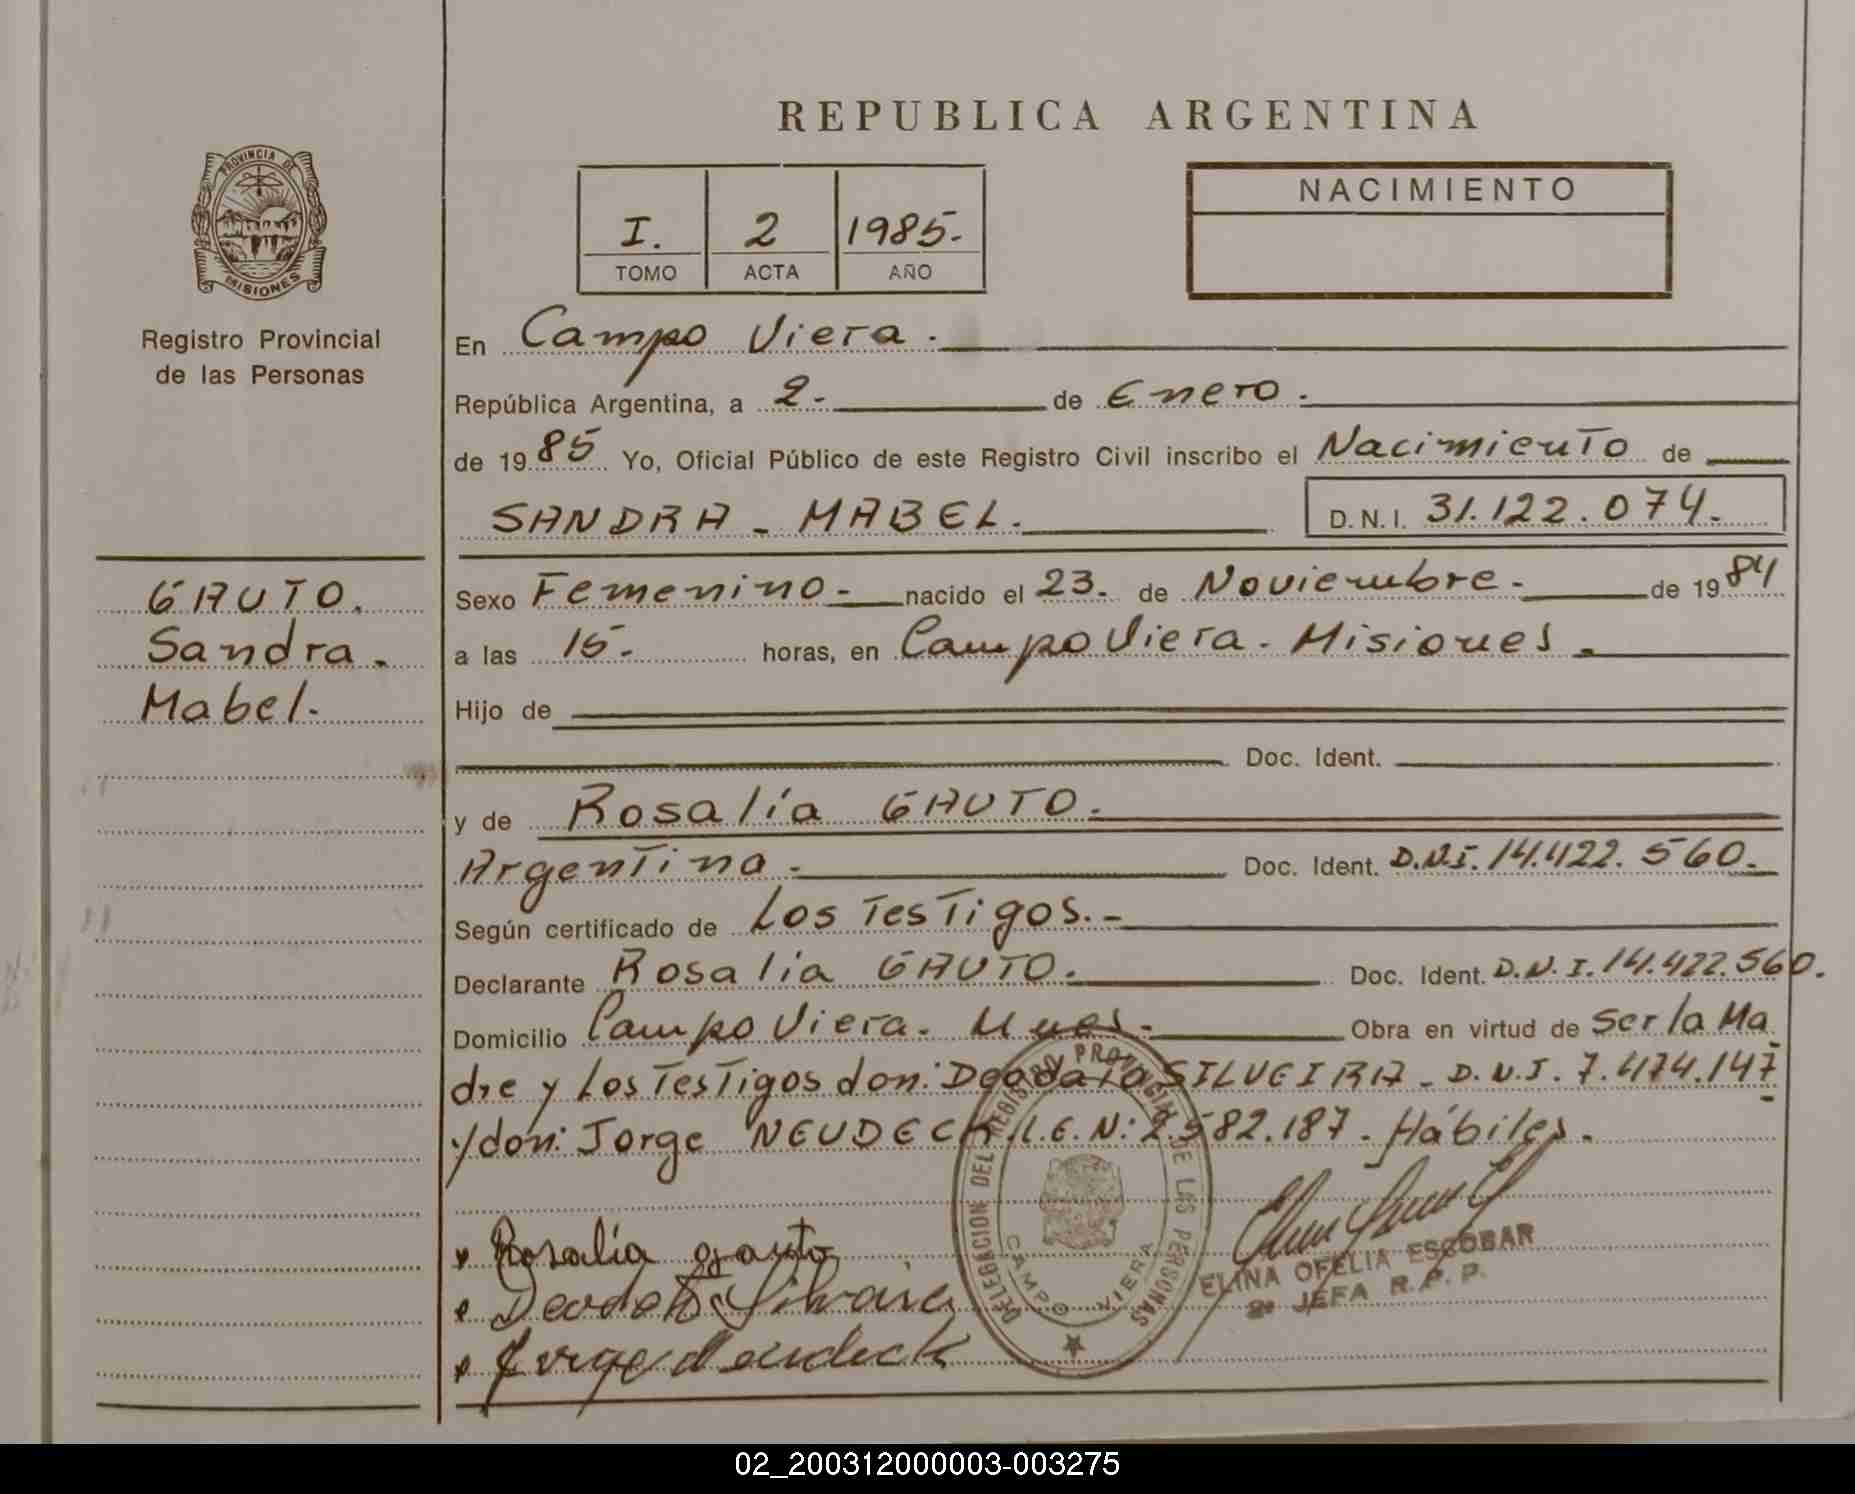 REPUBLICA ARGENTINA
PROVINCIA DE
MISIONES
Registro Provincial
de las Personas
I. 2 1985.-
TOMO ACTA AÑO
NACIMIENTO
En Campo Viera.
República Argentina, a 2.- de Enero.
de 1985 Yo, Oficial Público de este Registro Civil inscribo el Nacimiento de
SANDRA - MABEL. D.N.I. 31.122.074.-
GAUTO.
Sandra.
Mabel.
Sexo Femenino.- nacido el 23. de Noviembre.- de 1984
a las 15.- horas, en Campo Viera. Misiones.
Hijo de
Doc. Ident.
y de Rosalía GAUTO.
Argentina.- Doc. Ident. D.N.I. 14.422.560.
Según certificado de Los Testigos.-
Declarante Rosalía GAUTO. Doc. Ident. D.N.I. 14.422.560.
Domicilio Campo Viera. Mnes.- Obra en virtud de Ser la Ma
dre y Los Testigos don: Deodato SILVEIRA. D.N.I. 7.474.147
y don: Jorge NEUDECK. L.E.N: 2.582.187. Hábiles.
Rosalía gauto
Deodato Silveira
Jorge Neudeck
DELEGACION DEL REGISTRO PROVINCIAL DE LAS PERSONAS
CAMPO VIERA
ELINA OFELIA ESCOBAR
2ª JEFA R.P.P.
02_200312000003-003275